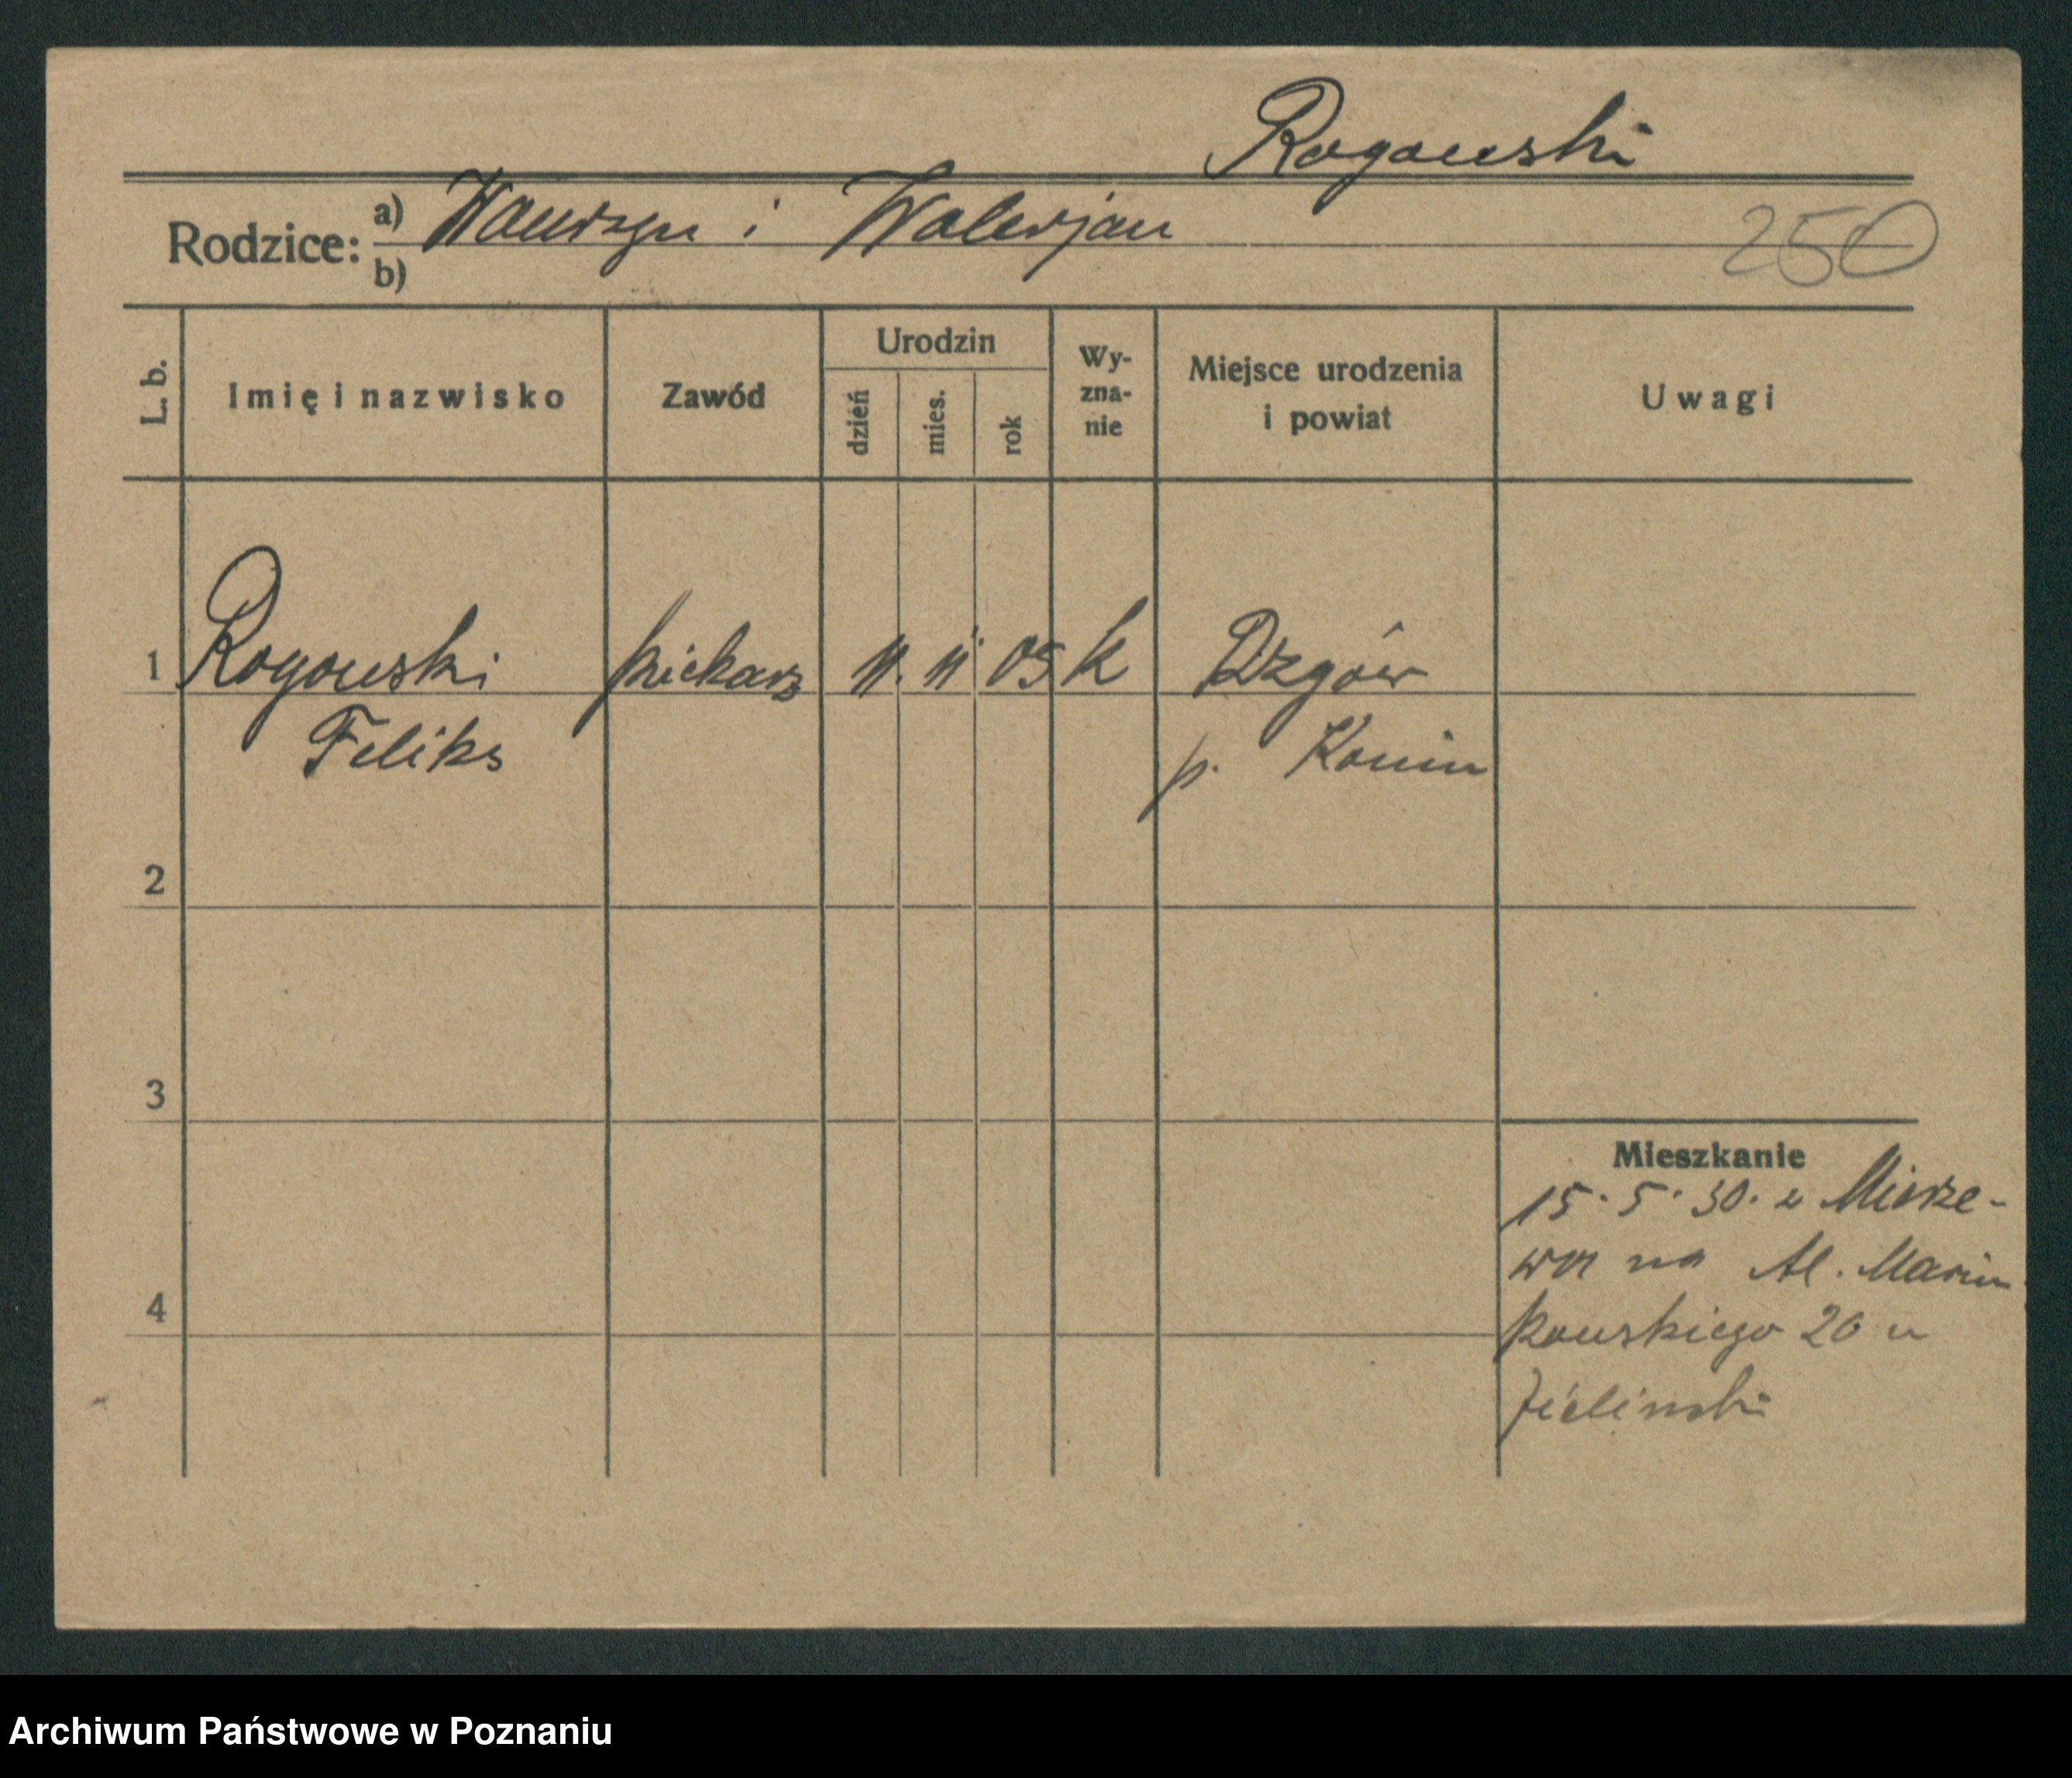 Rogowski
Rodzice: a) Wawrzyn i Walerjan
b)
250
L. b. Imię i nazwisko Zawód Urodzin dzień mies. rok Wy-zna-nie Miejsce urodzenia i powiat Uwagi
1 Rogowski piekarz 11. 11 05 k
Feliks p. Konin
2
3
Mieszkanie
15. 5. 30. z Mierze-
wa na Al. Marcin
kowskiego 20 u
4
Zieliński
Archiwum Państwowe w Poznaniu